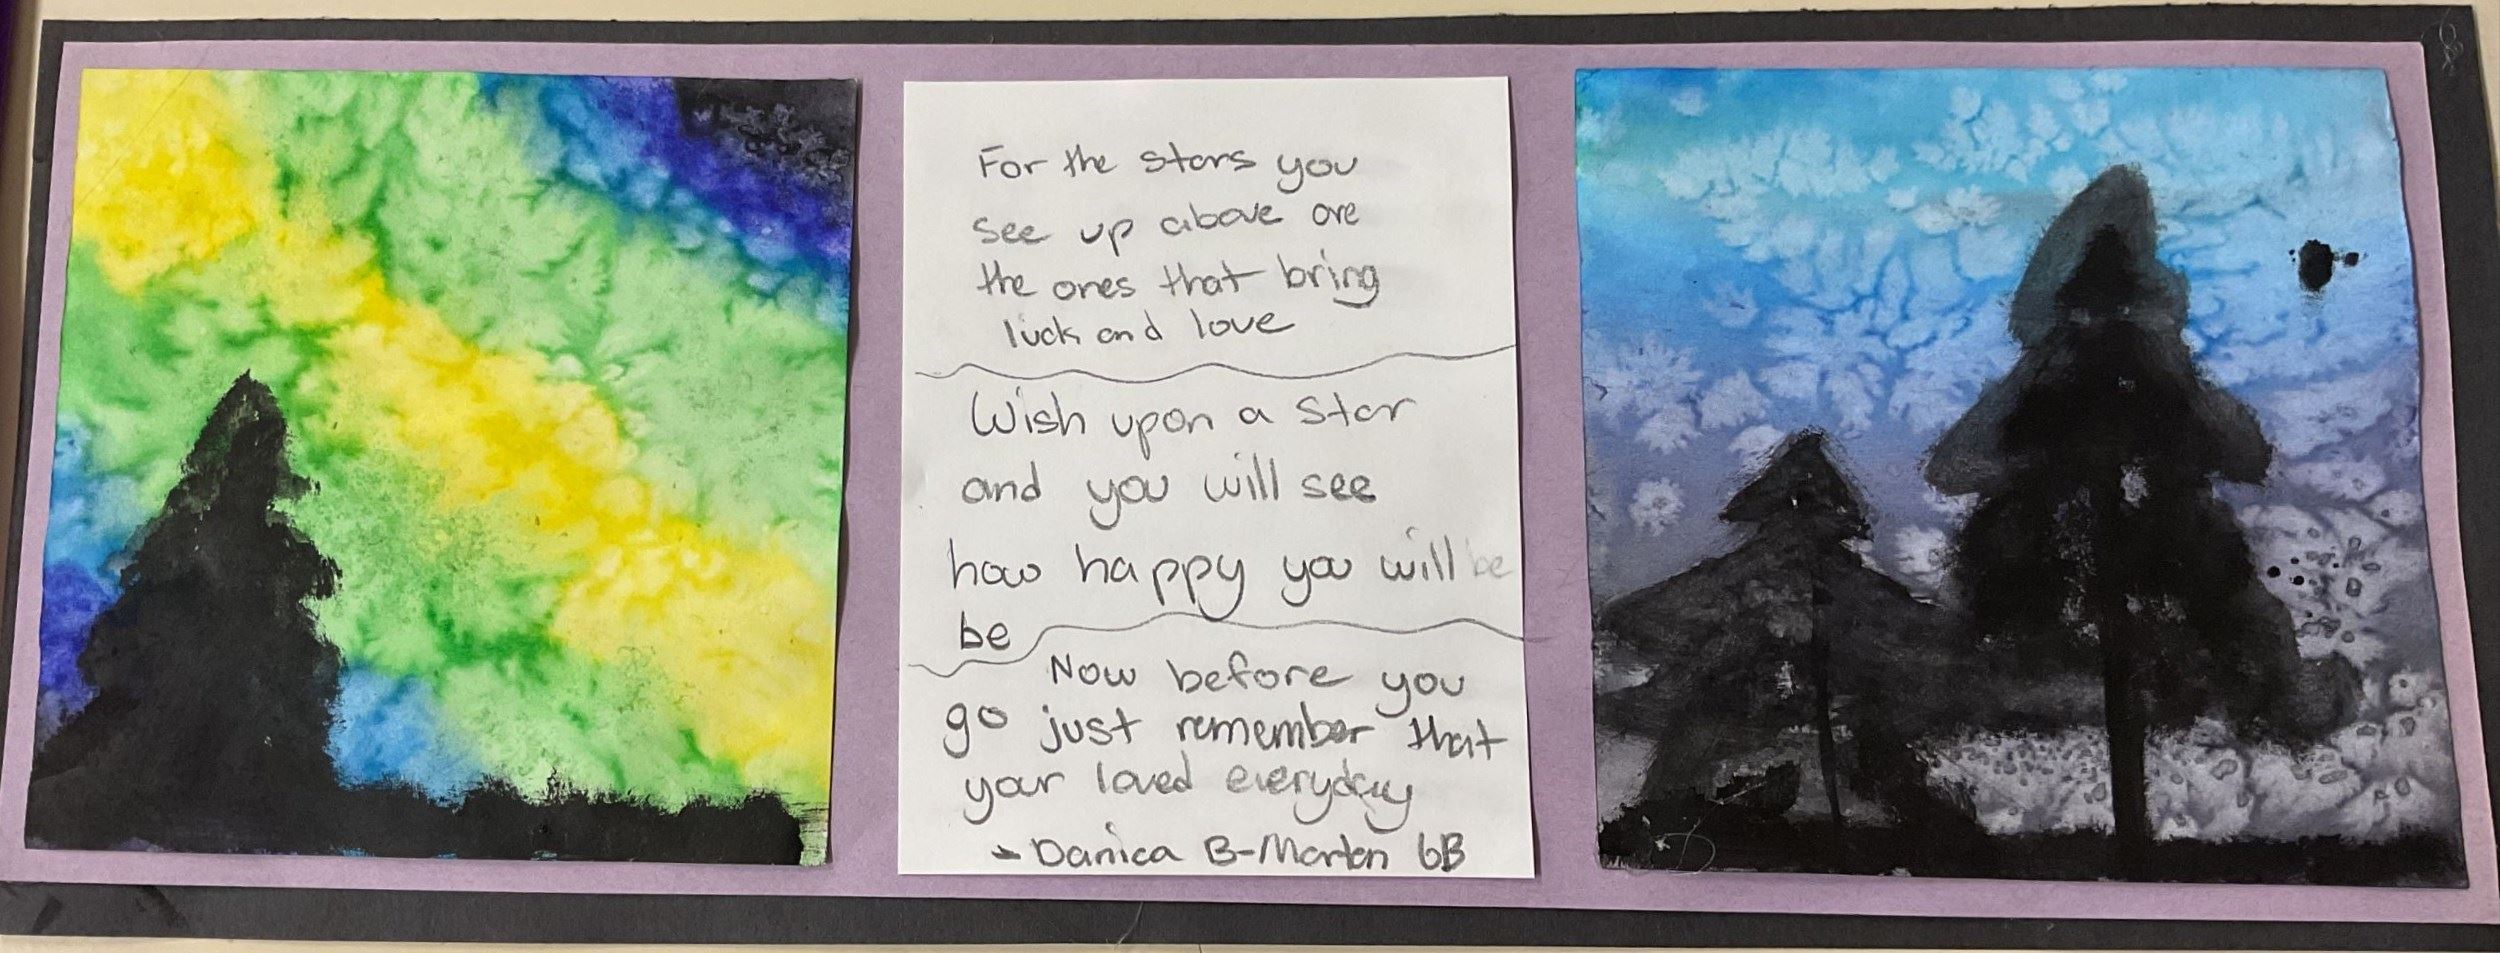 For the stars you
see up above are
the ones that bring
luck and love
Wish upon a star
and you will see
how happy you will be
be
Now before you
go just remember that
your loved everyday
- Danica B-Morton 6B